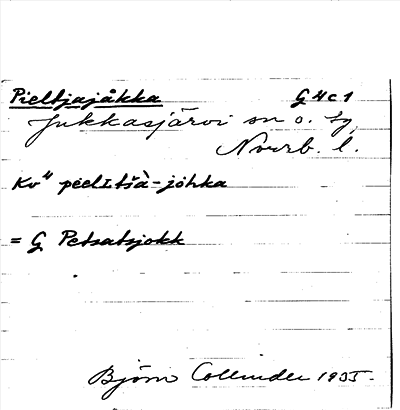 Pieltjajåkka G4c1
Jukkasjärvi sn o. tg,
Norrb. l.
Kv" pieelıtšà-jöhka
= G Petsatsjokk
Björn Collinder 1935.